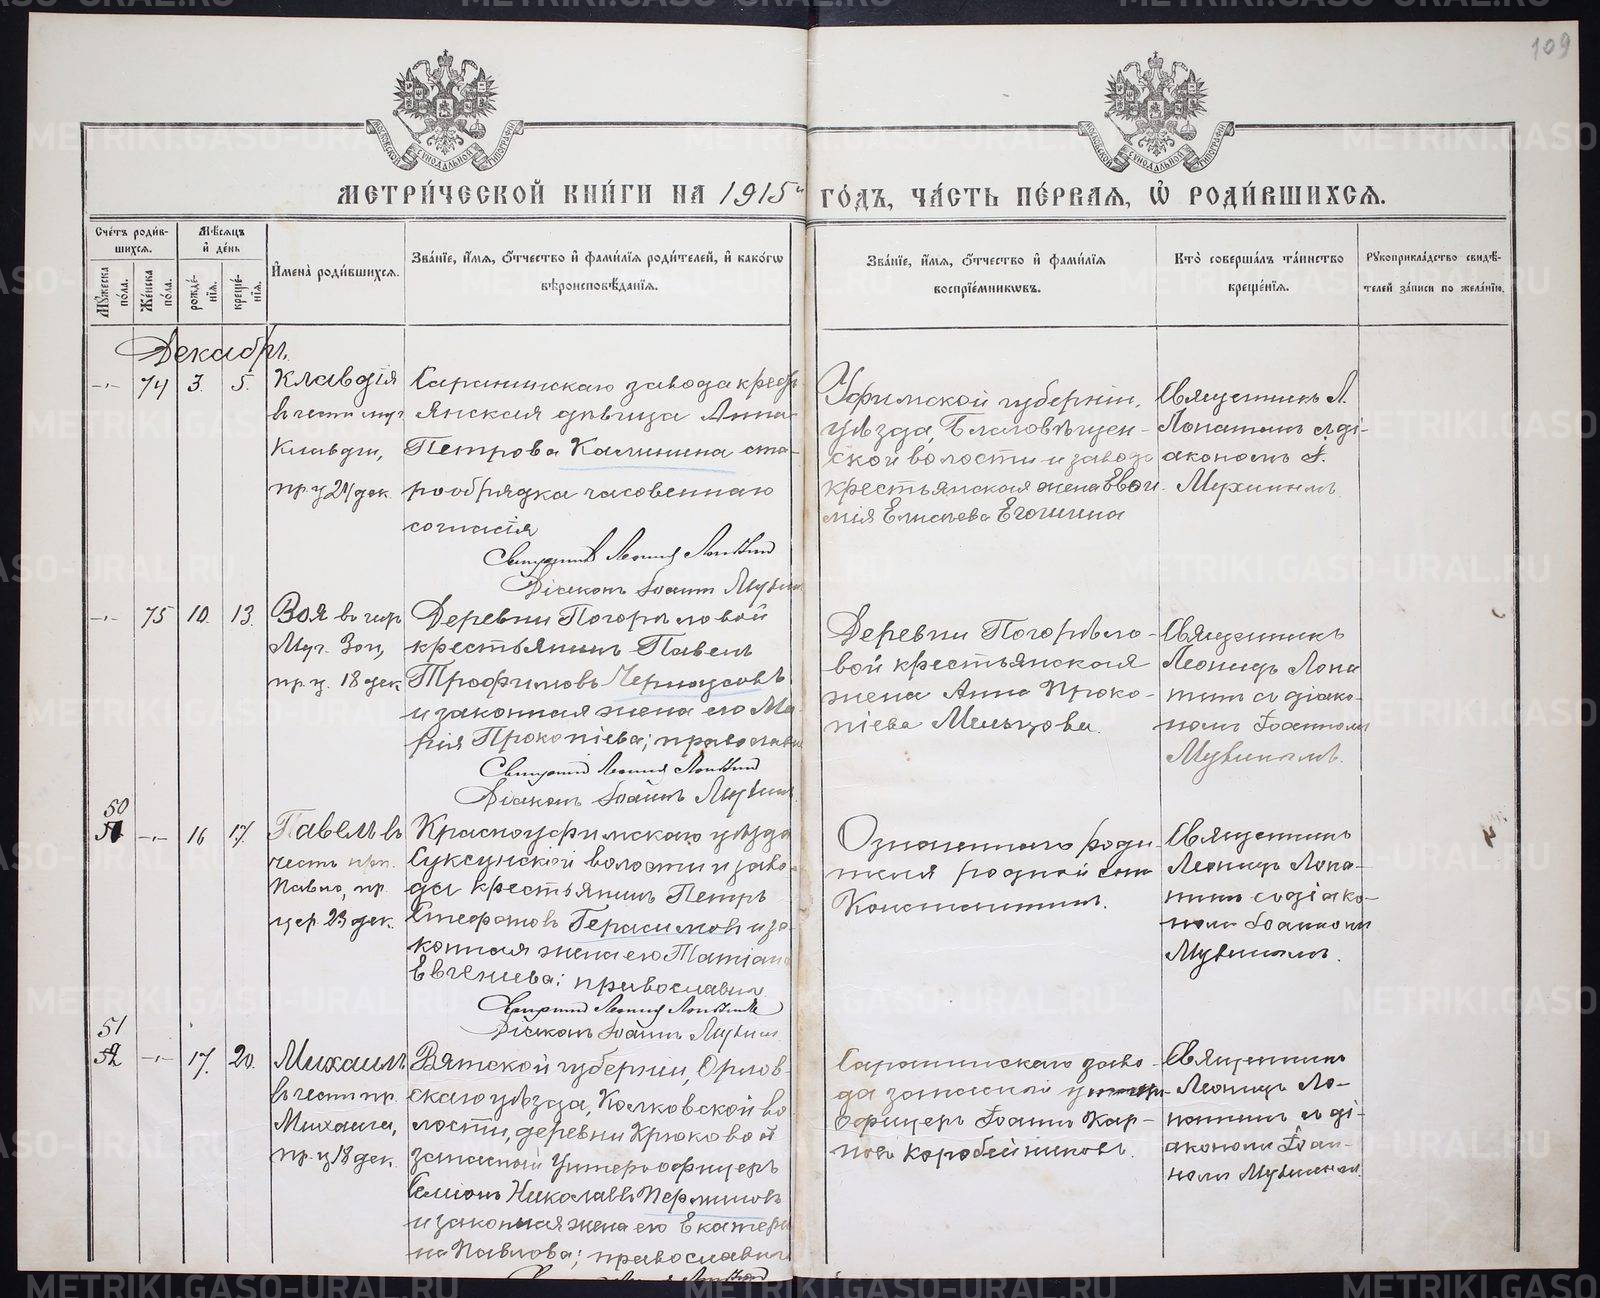 109
МОСКОВСКОЙ СѴНОДАЛЬНОЙ ТИПОГРАФІИ
МОСКОВСКОЙ СѴНОДАЛЬНОЙ ТИПОГРАФІИ
МЕТРИ́ЧЕСКОЙ КНИ́ГИ НА 1915й ГО́ДЪ, ЧА́СТЬ ПЕ́РВАѦ, Ѡ҆ РОДИ́ВШИХСѦ.
Сче́тъ роди́в-
шихсѧ.
Мꙋ́жеска по́ла.
Же́нска по́ла.
Мѣ́сѧцъ
и҆ де́нь
рожде́-
нїѧ.
креще́-
нїѧ.
И҆мена̀ роди́вшихсѧ.
Зва́нїе, и҆́мѧ, ѻ҆́тчество и҆ фами́лїѧ роди́телей, и҆ како́гѡ
вѣроисповѣ́данїѧ.
Зва́нїе, и҆́мѧ, ѻ҆́тчество и҆ фами́лїѧ
воспрїе́мникѡвъ.
Кто̀ соверша́лъ та́инство
креще́нїѧ.
Рꙋкоприкла́дство свидѣ́-
телей за́писи по жела́нїю.
Декабрь.
-"- 74 3. 5.
Клавдія
въ честь муч.
Клавдіи,
пр. ц 24 дек.
Саранинскаго завода кресть-
янская дѣвица Анна
Петрова Калинина ста-
рообрядка часовеннаго
согласія
Священникъ Леонид Лопатин
Діаконъ Іоаннъ Мухин
Уфимской губерніи,
уѣзда, Благовѣщен-
ской волости и завода
крестьянская жена Евѳи-
мія Елисѣева Егошина
Священникъ Л.
Лопатинъ съ ді-
акономъ І.
Мухинымъ.
-"- 75 10. 13.
Зоя въ честь
Муч. Зои,
пр. ц. 18 дек.
Деревни Погорѣловой
крестьянинъ Павелъ
Трофимовъ Черноусовъ
и законная жена его Ма-
рія Прокопіева; православн
Священник Леонид Лопатин
Діаконъ Іоаннъ Мухин
Деревни Погорѣло-
вой крестьянская
жена Анна Проко-
піева Мальцова.
Священникъ
Леонидъ Лопа
тинъ съ діако-
номъ Іоанномъ
Мухинымъ.
50
51 -"- 16 17.
Павелъ въ
честь прп.
Павла, пр.
цер. 23 дек.
Красноуфимскаго уѣзда
Суксунской волости и заво-
да крестьянинъ Петръ
Стефановъ Герасимовъ и за-
конная жена его Татіана
Евгеніева; православн
Священник Леонид Лопатинъ
Діаконъ Іоаннъ Мухин
Означеннаго роди-
теля родной сын
Константинъ.
Священникъ
Леонидъ Лопа-
тинъ съ діако-
номъ Іоанномъ
Мухинымъ.
51
52 -"- 17. 20.
Михаилъ
въ честь пр.
Михаила,
пр. ц 18 дек.
Вятской губерніи, Орлов-
скаго уѣзда, Колковской во
лости, деревни Крюковой
запасной Унтеръ-офицеръ
Семіонъ Николаевъ Перминовъ
и законная жена его Екатери
на Павлова; православные
Саранинскаго заво-
да запасной унтеръ-
офицеръ Іоаннъ Кар-
повъ Коробейниковъ.
Священникъ
Леонидъ Ло-
патинъ съ ді-
акономъ Іоан-
номъ Мухинымъ.
METRIKI.GASO-URAL.RU